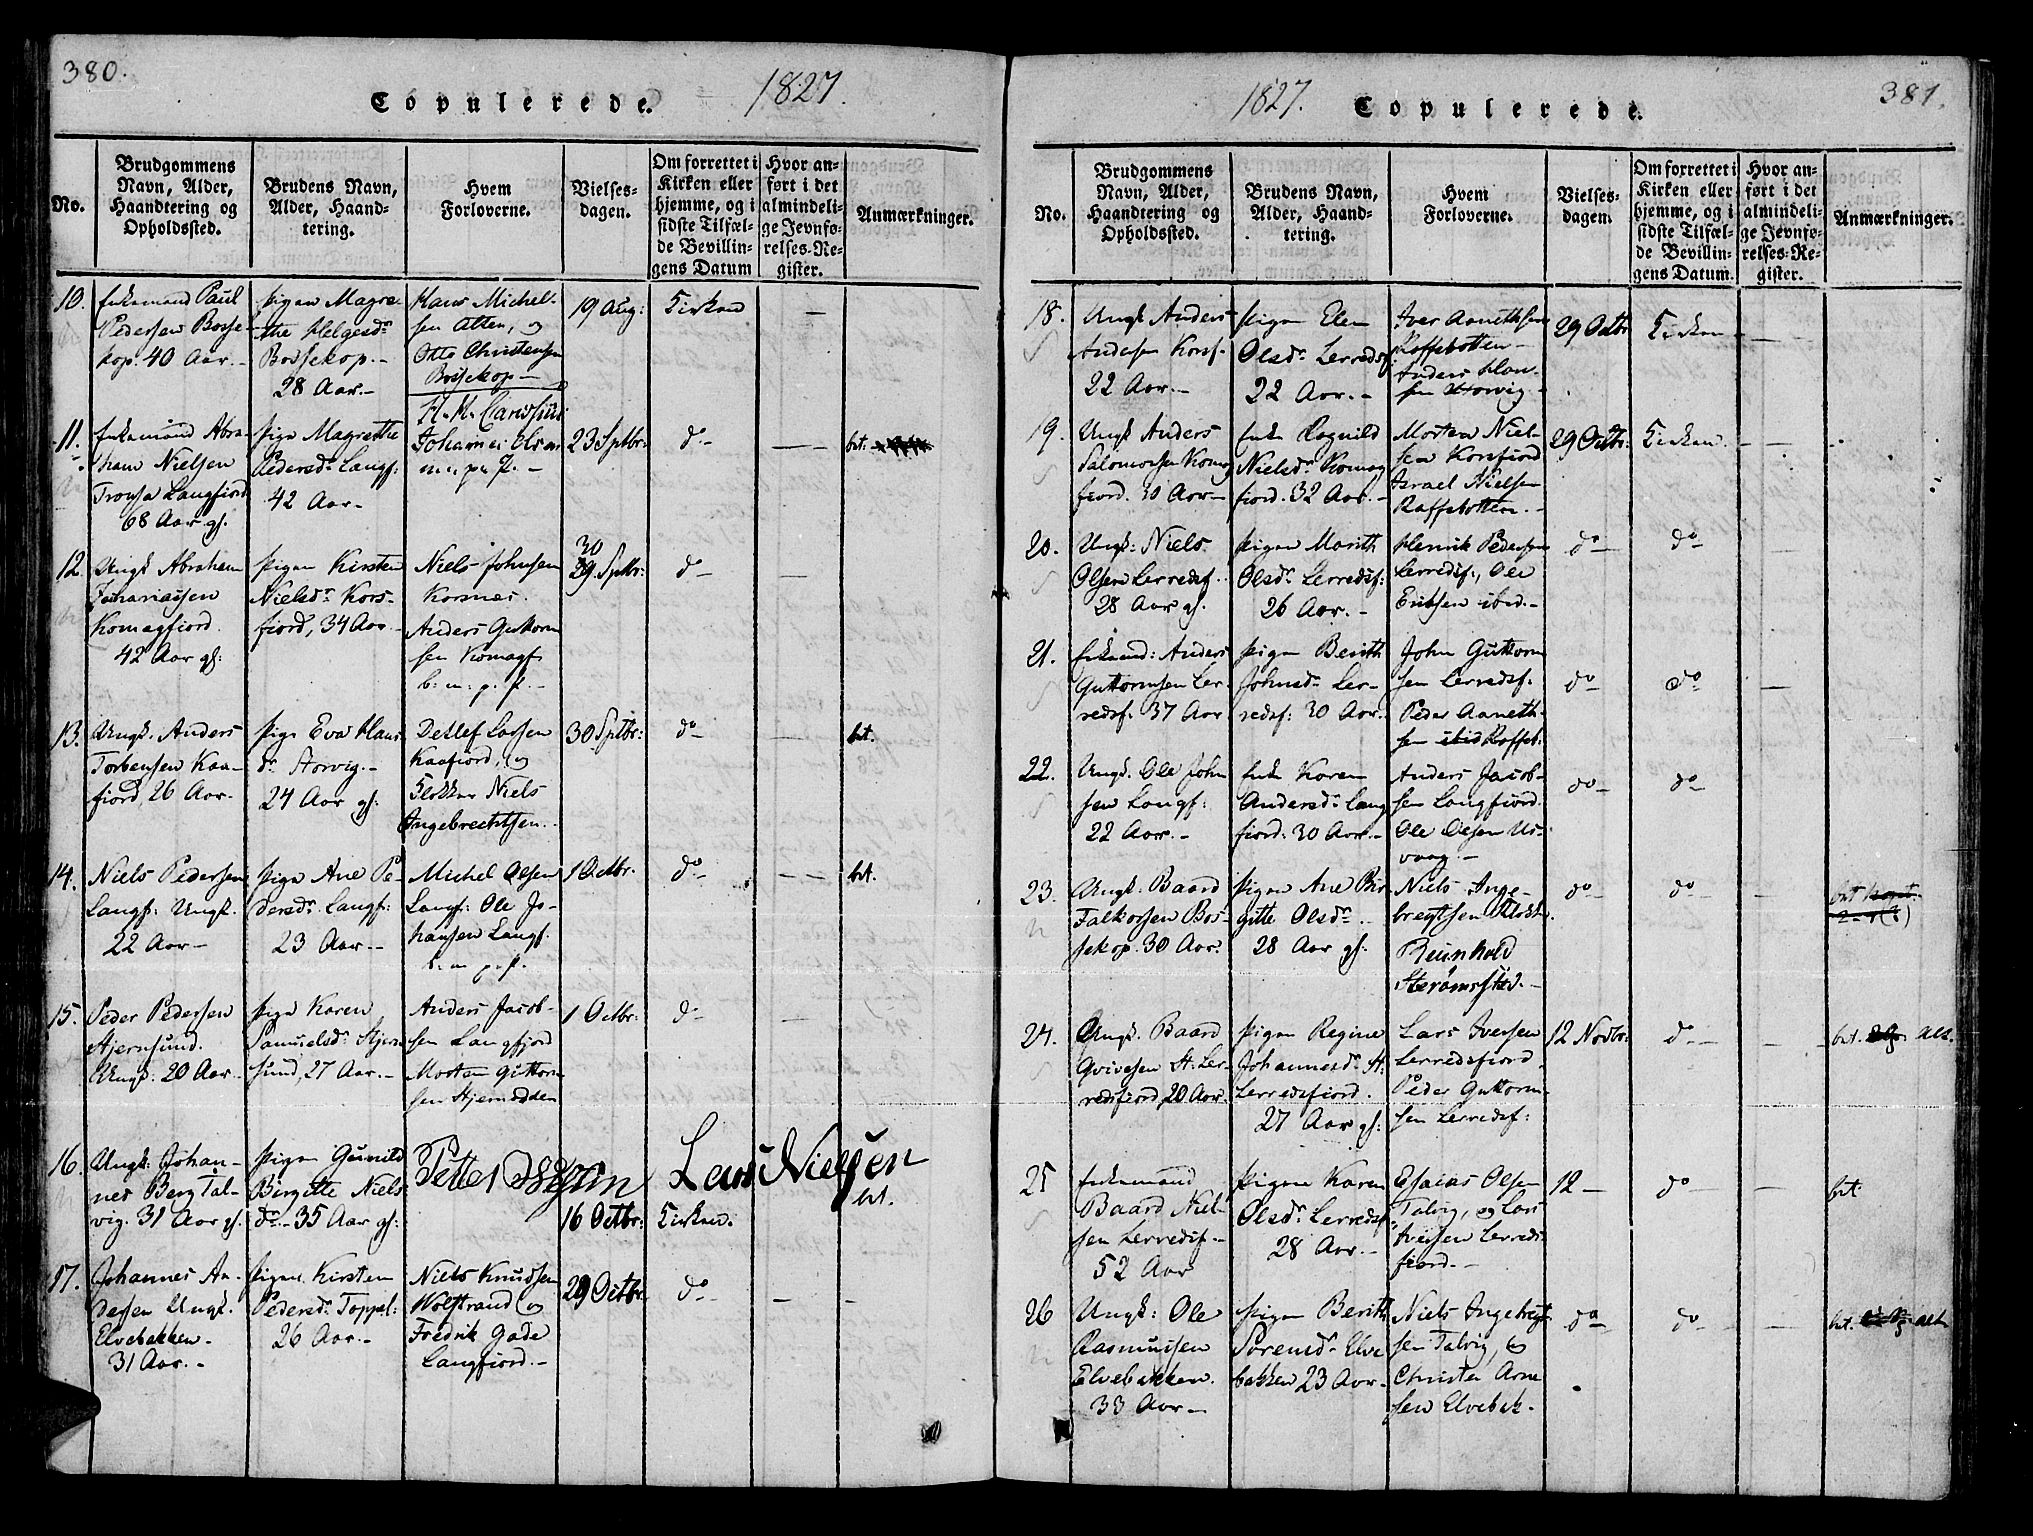 380.
Copulerede. 1827.
No.
Brudgommens
Navn, Alder,
Haandtering og
Opholdssted.
Brudens Navn,
Alder, Haand-
tering.
Hvem
Forloverne.
Vielses-
dagen.
Om forrettet i
Kirken eller
hjemme, og i
sidste Tilfæl-
de Bevillin-
gens Datum
Hvor an-
ført i det
almindeli-
ge Jevnfø-
relses-Re-
gister.
Anmærkninger.
10.
Enkemand Paul
Pedersen Bosse-
kop. 40 Aar.-
Pigen Magre-
the Helgesdr
Bossekop.-
28 Aar.-
Hans Michel-
sen Alten, og
Otto Christensen
Bossekop-
19 Aug:
Kirken
11.
Enkemand Abra-
ham Nielsen
Langfiord
68 Aar gl.
Pige Magrethe
Pedersdr Langf:
42 Aar-
Johannes
m. p. P.-
23 Sptbr:
do-
bet.
12.
Ungk Abraham
Komagfiord.
42 Aar gl:
Pigen Kirsten
Nielsdr Kors-
fiord, 34 Aar.-
Niels Johnsen
Korsnæs.
Anders Guttorm
sen Komagf
b: m: p. P.-
30
29. Sptbr:
do-
13.
Ungk. Anders
Torbensen Kaa-
fiord, 26 Aar.
Pige Eva Hans
dr Storvig.-
24 Aar gl:
Detlef Larsen
Kaafiord, og
Klokker Niels
Ingebrechtsen.
30 Sptbr:
do-
bet.
14.
Niels Pedersen
Langf: Ungk.
22 Aar-
Pige Ane Pe-
dersdr Langf:
23 Aar.-
Michel Olsen
Langf: Ole Jo-
hansen Langf.
b: m p. P.
1 Octbr.
do-
bet.
15.
Peder Pedersen
Stjernsund.
Ungk. 20 Aar.-
Pige Karen
Samuelsdr Stjern
sund, 27 Aar.-
Anders Jacob-
sen Langfjord
Morten Guttorm-
sen
1 Octbr:
do-
16.
Ungk: Johan-
nes Berg Tal-
vig. 31 Aar gl.
Pigen Gunild
Birgitte Niels
dr.- 35 Aar gl:
Petter
Lars Nielsen
16 Octbr:
Kirken.
bet.
17.
Johannes An-
dersen Ungk.
Elvebakken.
31 Aar.-
Pigen Kirsten
Pedersdr Toppel:
26 Aar.-
Niels Knudsen
Wolstrand og
Fredrik Gade
Langfiord.-
29 Octbr.
do-
381.
1827. Copulerede.
No.
Brudgommens
Navn, Alder,
Haandtering og
Opholdssted.
Brudens Navn,
Alder, Haand-
tering.
Hvem
Forloverne.
Vielses-
dagen.
Om forrettet i
Kirken eller
hjemme, og i
sidste Tilfæl-
de Bevillin-
gens Datum.
Hvor an-
ført i det
almindeli-
ge Jevnfø-
relses-Re-
gister.
Anmærkninger.
18.
Ungk Anders
Andersen Korsf-
22 Aar.-
Pigen Elen
Olsdr Lerredsf.
22 Aar.-
Iver Aanethsen
Raffsbotten-
Anders Han-
sen Storvig.-
29 Octbr
Kirken
19.
Ungk Anders
Salomonsen Komag
fiord. 30 Aar-
Enke Ragnild
Nielsdr Komag
fiord. 32 Aar.-
Morten Niel-
sen Korsfiord
Israel Nielsen
Raffsbotten.-
29 Octbr:
Kirken.
20.
Ungk: Niels
Olsen Lerredsf.
28 Aar gl.
Pigen Marith
Olsdr Lerredsf:
26 Aar.-
Henrik Pedersen
Lerredsf:, Ole
Eriksen ibid.-
do-
do-
21.
Enkemd: Anders
Guttormsen Ler-
redsf: 37 Aar
Pigen Berith
Johnsdr Ler-
redsf: 30 Aar.
John Guttorm
sen Lerredsf.
Peder Aaneth-
sen ibid Raffsb:
do-
do-
22.
Ungk. Ole John
sen Langf:
22 Aar.-
Enke Karen
Andersdr Lang
fiord. 30 Aar.-
Anders Jacob-
sen Langfiord.
Ole Olsen Us-
vaag.-
do-
do-
23.
Ungk. Baard
Falkorsen Bos-
sekop. 30 Aar.
Pigen Ane Bir
gitte Olsdr
28 Aar gl.
Niels Inge-
bregtsen Klokk.
Reinhold
Strømsted.-
do-
do-
bet
24.
Ungk. Baard
St: Ler-
redsfiord, 20 Aar.
Pigen Regine
Johannesdr St:
Lerredsfiord.
27 Aar gl:
Lars Iversen
Lerredsfiord.
Peder Guttorm-
sen Lerredsf:
12 Novbr:
do-
bet. Alt.
25
Enkemand
Baard Niel-
sen Lerredsf.-
52 Aar
Pigen Karen
Olsdr Lerredsf
28 Aar.-
Esaias Olsen
Talvig, og Lars
Iversen Lerreds-
fiord.-
12-
do-
bet.
26
Ungk: Ole
Rasmussen
Elvebakken.
33 Aar.-
Pigen Berith
Sørensdr Elve
bakken 23 Aar.
Niels Ingebregt
sen Talvig, og
Christen Arne
sen Elvebak.-
do-
do-
bet. Alt